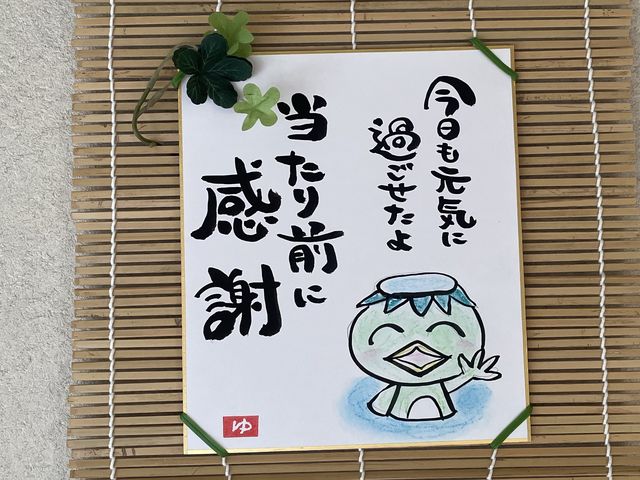 今日も元気に
過ごせたよ
当たり前に
感謝
ゆ